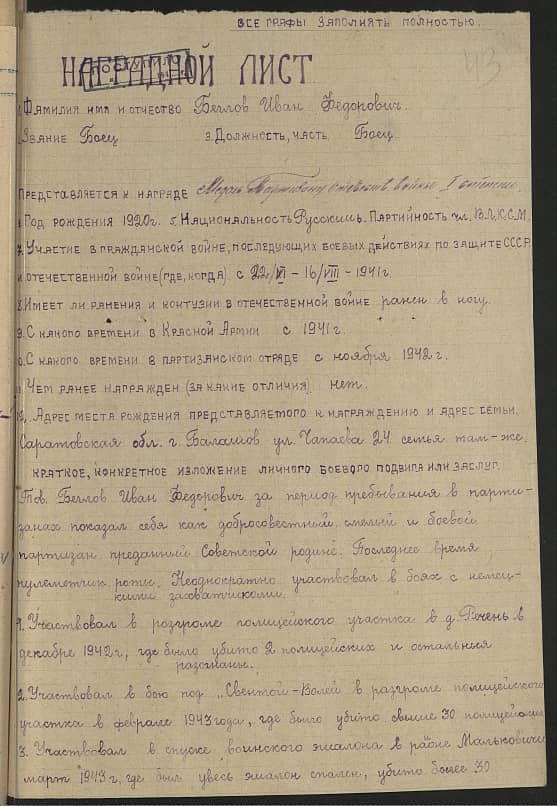 ВСЕ ГРАФЫ ЗАПОЛНЯТЬ ПОЛНОСТЬЮ.
43
НАГРАДНОЙ ЛИСТ
ПОСТУПИЛО
1. ФАМИЛИЯ ИМЯ И ОТЧЕСТВО Беглов Иван Федорович.
2. ЗВАНИЕ Боец 3. ДОЛЖНОСТЬ, ЧАСТЬ Боец
ПРЕДСТАВЛЯЕТСЯ К НАГРАДЕ Медаль Партизану отечеств. войны I степени.
ГОД РОЖДЕНИЯ 1920г. 5. НАЦИОНАЛЬНОСТЬ Русский 6. ПАРТИЙНОСТЬ чл. ВЛКСМ.
7. УЧАСТИЕ В ГРАЖДАНСКОЙ ВОЙНЕ, ПОСЛЕДУЮЩИХ БОЕВЫХ ДЕЙСТВИЯХ ПО ЗАЩИТЕ СССР
И ОТЕЧЕСТВЕННОЙ ВОЙНЕ (ГДЕ, КОГДА) С 22/VI - 16/VIII - 1941г.
8. ИМЕЕТ ЛИ РАНЕНИЯ И КОНТУЗИИ В ОТЕЧЕСТВЕННОЙ ВОЙНЕ ранен в ногу.
9. С КАКОГО ВРЕМЕНИ В КРАСНОЙ АРМИИ с 1941г.
0. С КАКОГО ВРЕМЕНИ В ПАРТИЗАНСКОМ ОТРЯДЕ с ноября 1942г.
ЧЕМ РАНЕЕ НАГРАЖДЕН (ЗА КАКИЕ ОТЛИЧИЯ) нет.
12. АДРЕС МЕСТА РОЖДЕНИЯ ПРЕДСТАВЛЯЕМОГО К НАГРАЖДЕНИЮ И АДРЕС СЕМЬИ.
Саратовская обл. г. Балашов ул. Чапаева 24 семья там-же.
КРАТКОЕ, КОНКРЕТНОЕ ИЗЛОЖЕНИЕ ЛИЧНОГО БОЕВОГО ПОДВИГА ИЛИ ЗАСЛУГ.
Тов. Беглов Иван Федорович за период пребывания в парти-
занах показал себя как добросовестный, смелый и боевой
партизан преданный Советской родине. Последнее время
пулеметчик роты. Неоднократно участвовал в боях с немец-
кими захватчиками.
1. Участвовал в розгроме полицейского участка в д. Речень в
декабре 1942г, где было убито 2 полицейских и остальные
разогнаны.
2. Участвовал в бою под "Свентой-Волей в разгроме полицейского
участка в феврале 1943 года, где было убито свыше 30 полицейских
3. Участвовал в спуске воинского эшалона в районе Мальковичи
март 1943г, где был увесь эшалон спален, убито более 30